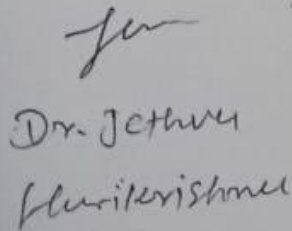 Dr. Jethva
Harikrishna